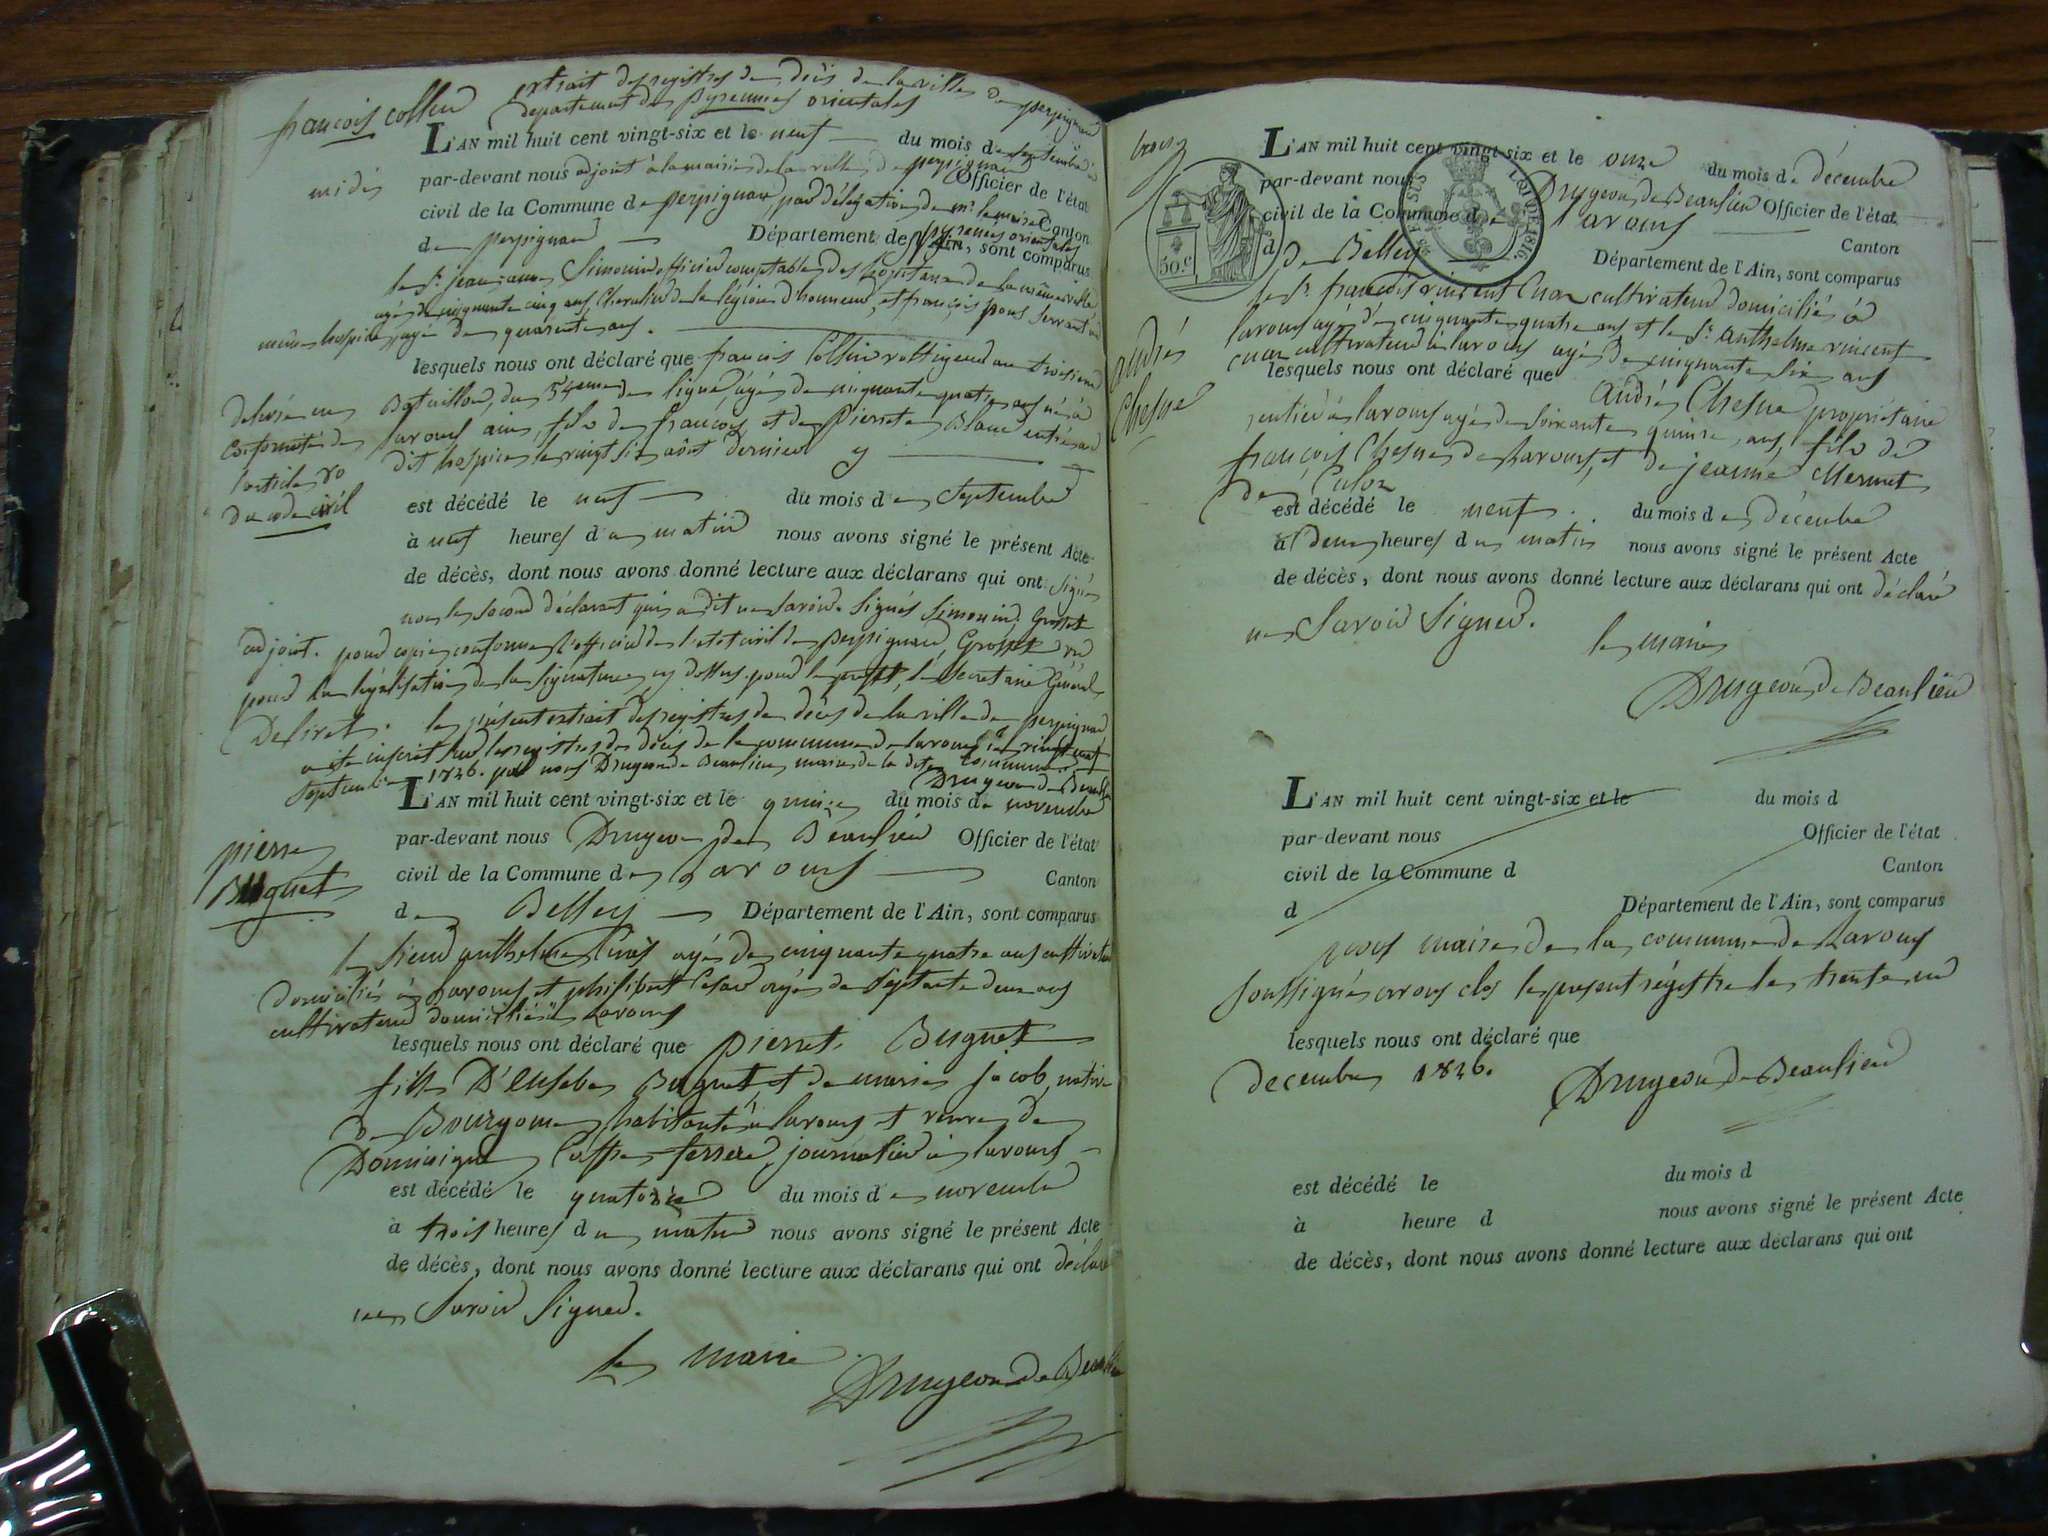 extrait des registres de décès de la ville de perpignan
françois collin departement des pyrennées orientales
L'AN mil huit cent vingt-six et le neuf du mois de septembre
par-devant nous adjoint à la mairie de la ville de perpignan Officier de l'état
civil de la Commune de perpignan par délégation de mr. le maire Canton
de perpignan Département de l'Ain, pyrennées orientales sont comparus
le Sr. jean Simonin officier comptable des hopitaux de la même ville
agé de cinquante cinq ans, Chevalier de la légion d'honneur, et françois pous servant au
même hospice, agé de quarente ans.
lesquels nous ont déclaré que françois Collin voltigeur au troisieme
Bataillon du 54eme de ligne, agé de cinquante quatre ans né à
Lavours ain, fils de françois et de Pierrette Blanc entré au
dit hospice le vingt six août dernier
conformité de
l'article 80
du code civil
est décédé le neuf du mois de Septembre
à neuf heures du matin nous avons signé le présent Acte
de décès, dont nous avons donné lecture aux déclarans qui ont signé
non le second déclarant qui a dit ne savoir. Signés Simonin, Grosset
adjoint. pour copie conforme l'officier de l'etat civil de perpignan, Grosset vu
pour la légalisation de la signature cy dessus. pour le préfet, le Secretaire Général
Delivet. le présent extrait des registres de décès de la ville de perpignan
a été inscrit sur les registres des décès de la commune de lavours le vingt neuf
septembre 1826. par nous Drugeon de Beaulieu, maire de la dite commune
Drugeon de Beaulieu
L'AN mil huit cent vingt-six et le quinze du mois de novembre
par-devant nous Drugeon de Beaulieu Officier de l'état
civil de la Commune de Lavours Canton
de Belley Département de l'Ain, sont comparus
pierre
Buguet
le Sieur anthelme Cuaz agé de cinquante quatre ans cultivateur
domicilié à Lavours et philibert César agé de septante deux ans
cultivateur domicilié à Lavours
lesquels nous ont déclaré que pierrete Buguet
fille D'Eusebe Buguet et de marie jacob, native
de Bourgogne habitante à lavours et veuve de
Dominique journalier à lavours
est décédé le quatorze du mois de novembre
à trois heures du matin nous avons signé le présent Acte
de décès, dont nous avons donné lecture aux déclarans qui ont déclaré
ne Savoir Signer.
le maire
Drugeon de Beaulieu
trois
50.c
LOI DE 1816.
L'AN mil huit cent vingt-six et le onze du mois de décembre
par-devant nous Drugeon de Beaulieu Officier de l'état
civil de la Commune de Lavours Canton
de Belley Département de l'Ain, sont comparus
le Sr. françois vincent Cuaz cultivateur domicilié à
lavours agé de cinquante quatre ans et le Sr. anthelme vincent
cuaz cultivateur à lavours agé de cinquante six ans
andré
Chesne
lesquels nous ont déclaré que André Chesne propriétaire
rentier à lavours agé de soixante quinze ans, fils de
françois Chesne de Lavours, et de jeanne Mermet
de Culoz
est décédé le neuf du mois de décembre
à deux heures du matin nous avons signé le présent Acte
de décès, dont nous avons donné lecture aux déclarans qui ont déclaré
ne Savoir Signer.
le maire
Drugeon de Beaulieu
L'AN mil huit cent vingt-six et le du mois d
par-devant nous Officier de l'état
civil de la Commune d Canton
d Département de l'Ain, sont comparus
nous maire de la commune de Lavours
soussigné avons clos le present régistre le trente un
lesquels nous ont déclaré que
decembre 1826. Drugeon de Beaulieu
est décédé le du mois d
à heure d nous avons signé le présent Acte
de décès, dont nous avons donné lecture aux déclarans qui ont